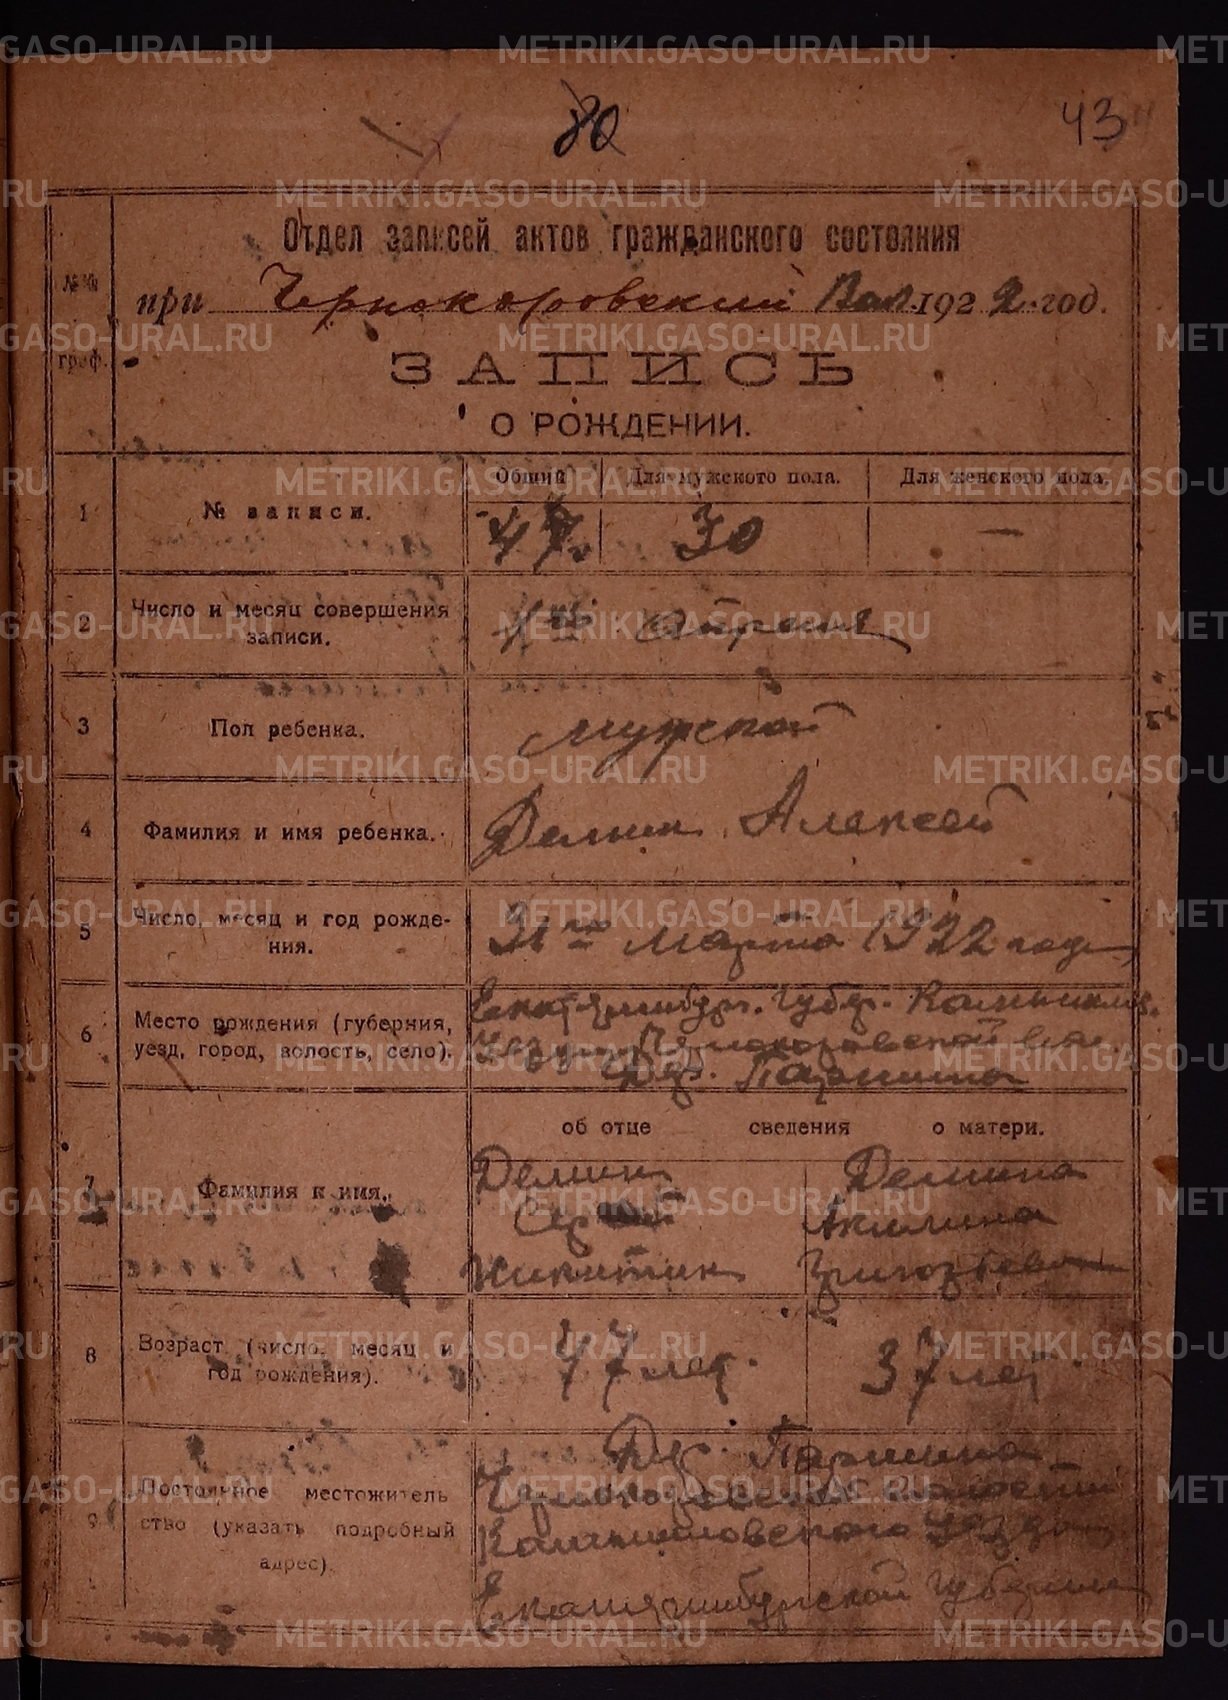 80
43
Отдел записей актов гражданского состояния
№№ граф.
при Чернокоровский Вол. 1922 год.
ЗАПИСЬ
О РОЖДЕНИИ.
Общий Для мужского пола. Для женского пола
1 № записи. 47. 30 —
2 Число и месяц совершения
записи. Апреля
3 Пол ребенка. Мужской
4 Фамилия и имя ребенка. Демин Алексей
5 Число, месяц и год рожде-
ния. Марта 1922 года
6 Место рождения (губерния,
уезд, город, волость, село).
Екатеринбург. губер. Камышлов.
Чернокоровской вол.
Дер. Паршина
об отце сведения о матери.
7 Фамилия и имя.
Демин Демина
Акилина
Никитин Григорьевна
8 Возраст (число, месяц и
год рождения). 47 лет. 37 лет
9 Постоянное местожитель
ство (указать подробный
адрес).
Дер. Паршина
Чернокоровской волости
Камышловского уезда
Екатеринбургской губернии
METRIKI.GASO-URAL.RU